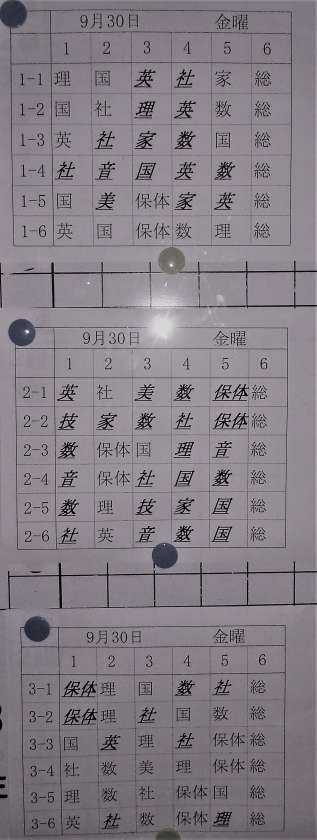 9月30日 金曜
1 2 3 4 5 6
1-1 理 国 英 社 家 総
1-2 国 社 理 英 数 総
1-3 英 社 家 数 国 総
1-4 社 音 国 英 数 総
1-5 国 美 保体 家 英 総
1-6 英 国 保体 数 理 総
9月30日 金曜
1 2 3 4 5 6
2-1 英 社 美 数 保体 総
2-2 技 家 数 社 保体 総
2-3 数 保体 国 理 音 総
2-4 音 保体 社 国 数 総
2-5 数 理 技 家 国 総
2-6 社 英 音 数 国 総
9月30日 金曜
1 2 3 4 5 6
3-1 保体 理 国 数 社 総
3-2 保体 理 社 国 数 総
3-3 国 英 理 社 保体 総
3-4 社 数 美 理 保体 総
3-5 理 数 社 保体 国 総
3-6 英 社 数 保体 理 総